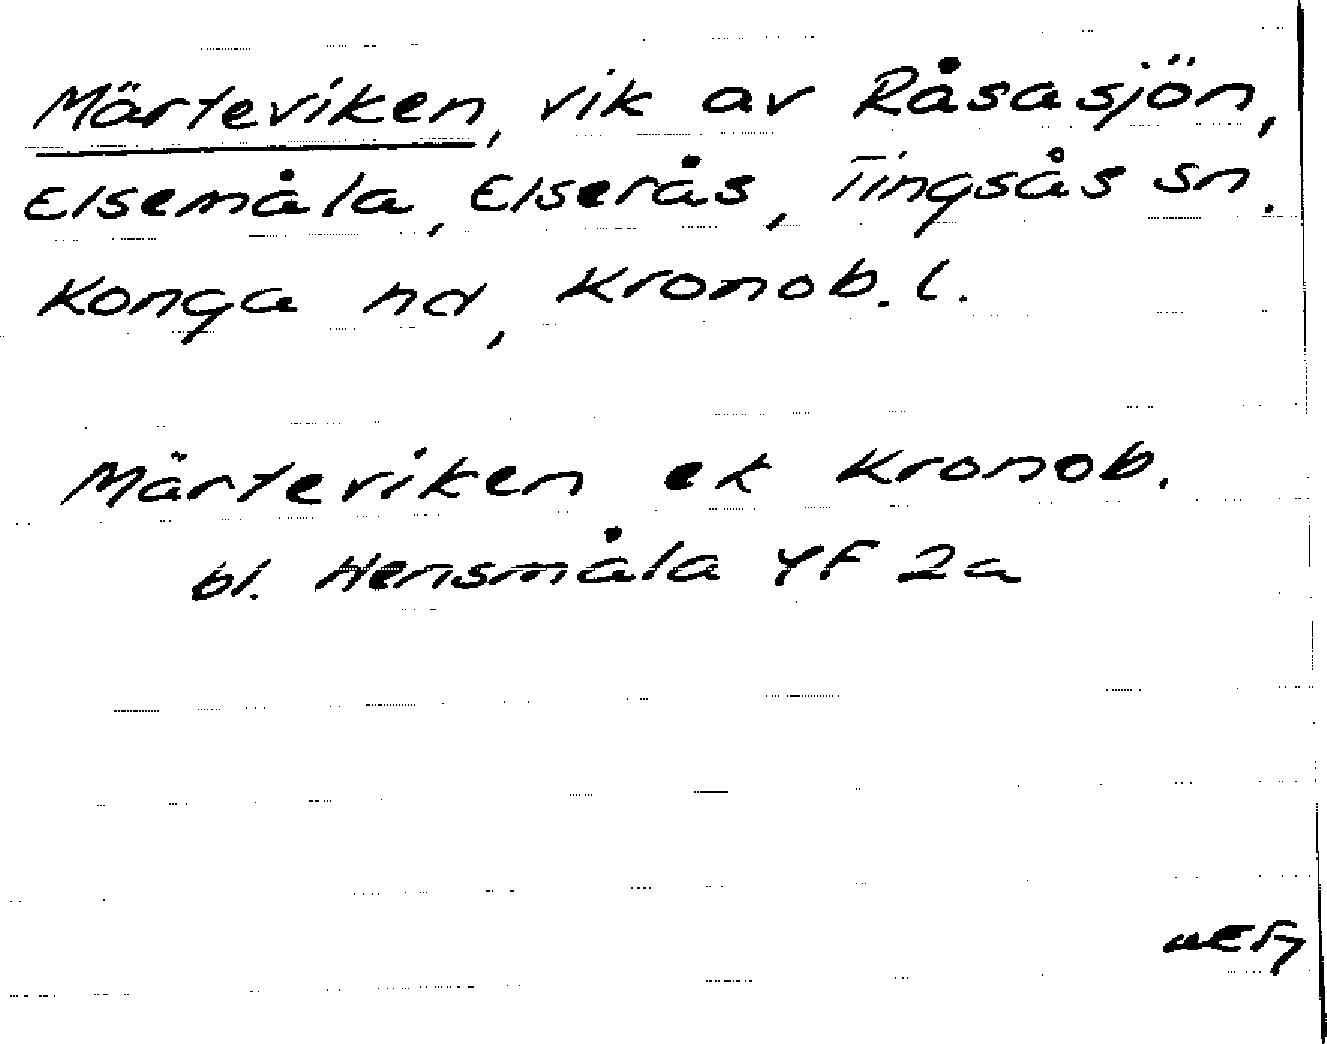 Märteviken, vik av Råsasjön,
Elsemåla, Elserås, Tingsås sn.
Konga hd, Kronob. l.
Märteviken ek Kronob.
bl. Hensmåla YF 2a